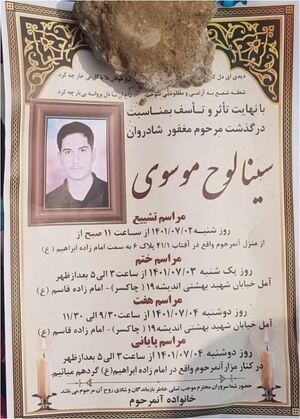 دیدی ای دل
با نهایت تأثر و تأسف بمناسبت
درگذشت مرحوم مغفور شادروان
سینا لوح موسوی
مراسم تشییع
روز شنبه ۱۴۰۱/۰۷/۰۲ از ساعت ۱۱ صبح از
منزل آنمرحوم واقع در آفتاب ۴۱/۱ پلاک ۶ به سمت امام زاده ابراهیم (ع)
مراسم ختم
روز یک شنبه ۱۴۰۱/۰۷/۰۳ از ساعت ۳ الی ۵ بعدازظهر
آمل خیابان شهید بهشتی اندیشه ۱۹ (چاکسر) - امام زاده قاسم (ع)
مراسم هفت
روز دوشنبه ۱۴۰۱/۰۷/۰۴ از ساعت ۹/۳۰ الی ۱۱/۳۰
آمل خیابان شهید بهشتی اندیشه ۱۹ (چاکسر) - امام زاده قاسم (ع)
مراسم پایانی
روز دوشنبه ۱۴۰۱/۰۷/۰۴ از ساعت ۳ الی ۵ بعدازظهر
در کنار مزار آنمرحوم واقع در امام زاده ابراهیم(ع) گردهم میاییم.
حضور شما سروران محترم موجب تسلی خاطر بازماندگان و شادی روح آن مرحوم می باشد
خانواده آنمرحوم